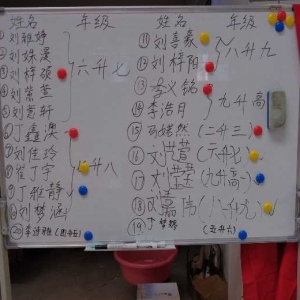 姓名 年级
①刘雅婷
②刘姝漫
③刘梓硕
④刘紫萱
⑤刘宽轩
六升七
⑥丁鑫澳
⑦刘佳玲
⑧崔丁宇
⑨丁雅静
⑩刘梦涵
七升八
⑳李诗雅(五升六)
姓名 年级
⑪刘喜豪
⑫刘梓阳
八升九
⑬李义铭
⑭李浩月
九升高
⑮马嫣然(二升三)
⑯刘芸萱(六升七)
⑰刘
(九升高一)
⑱刘嘉伟(八升九)
⑲丁梦
(五升六)